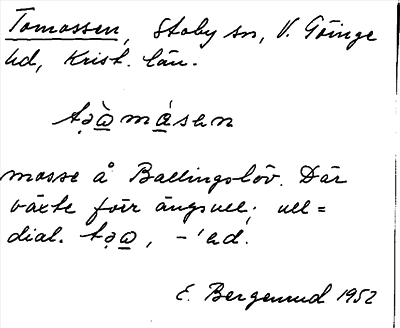 Tomossen, Stoby sn, V. Göinge
hd, Krist. län.
tə̀ωmásen
mosse å Ballingslöv. Där
växte förr ängsull; ull =
dial. təω, -'ed.
E. Bergenrud 1952